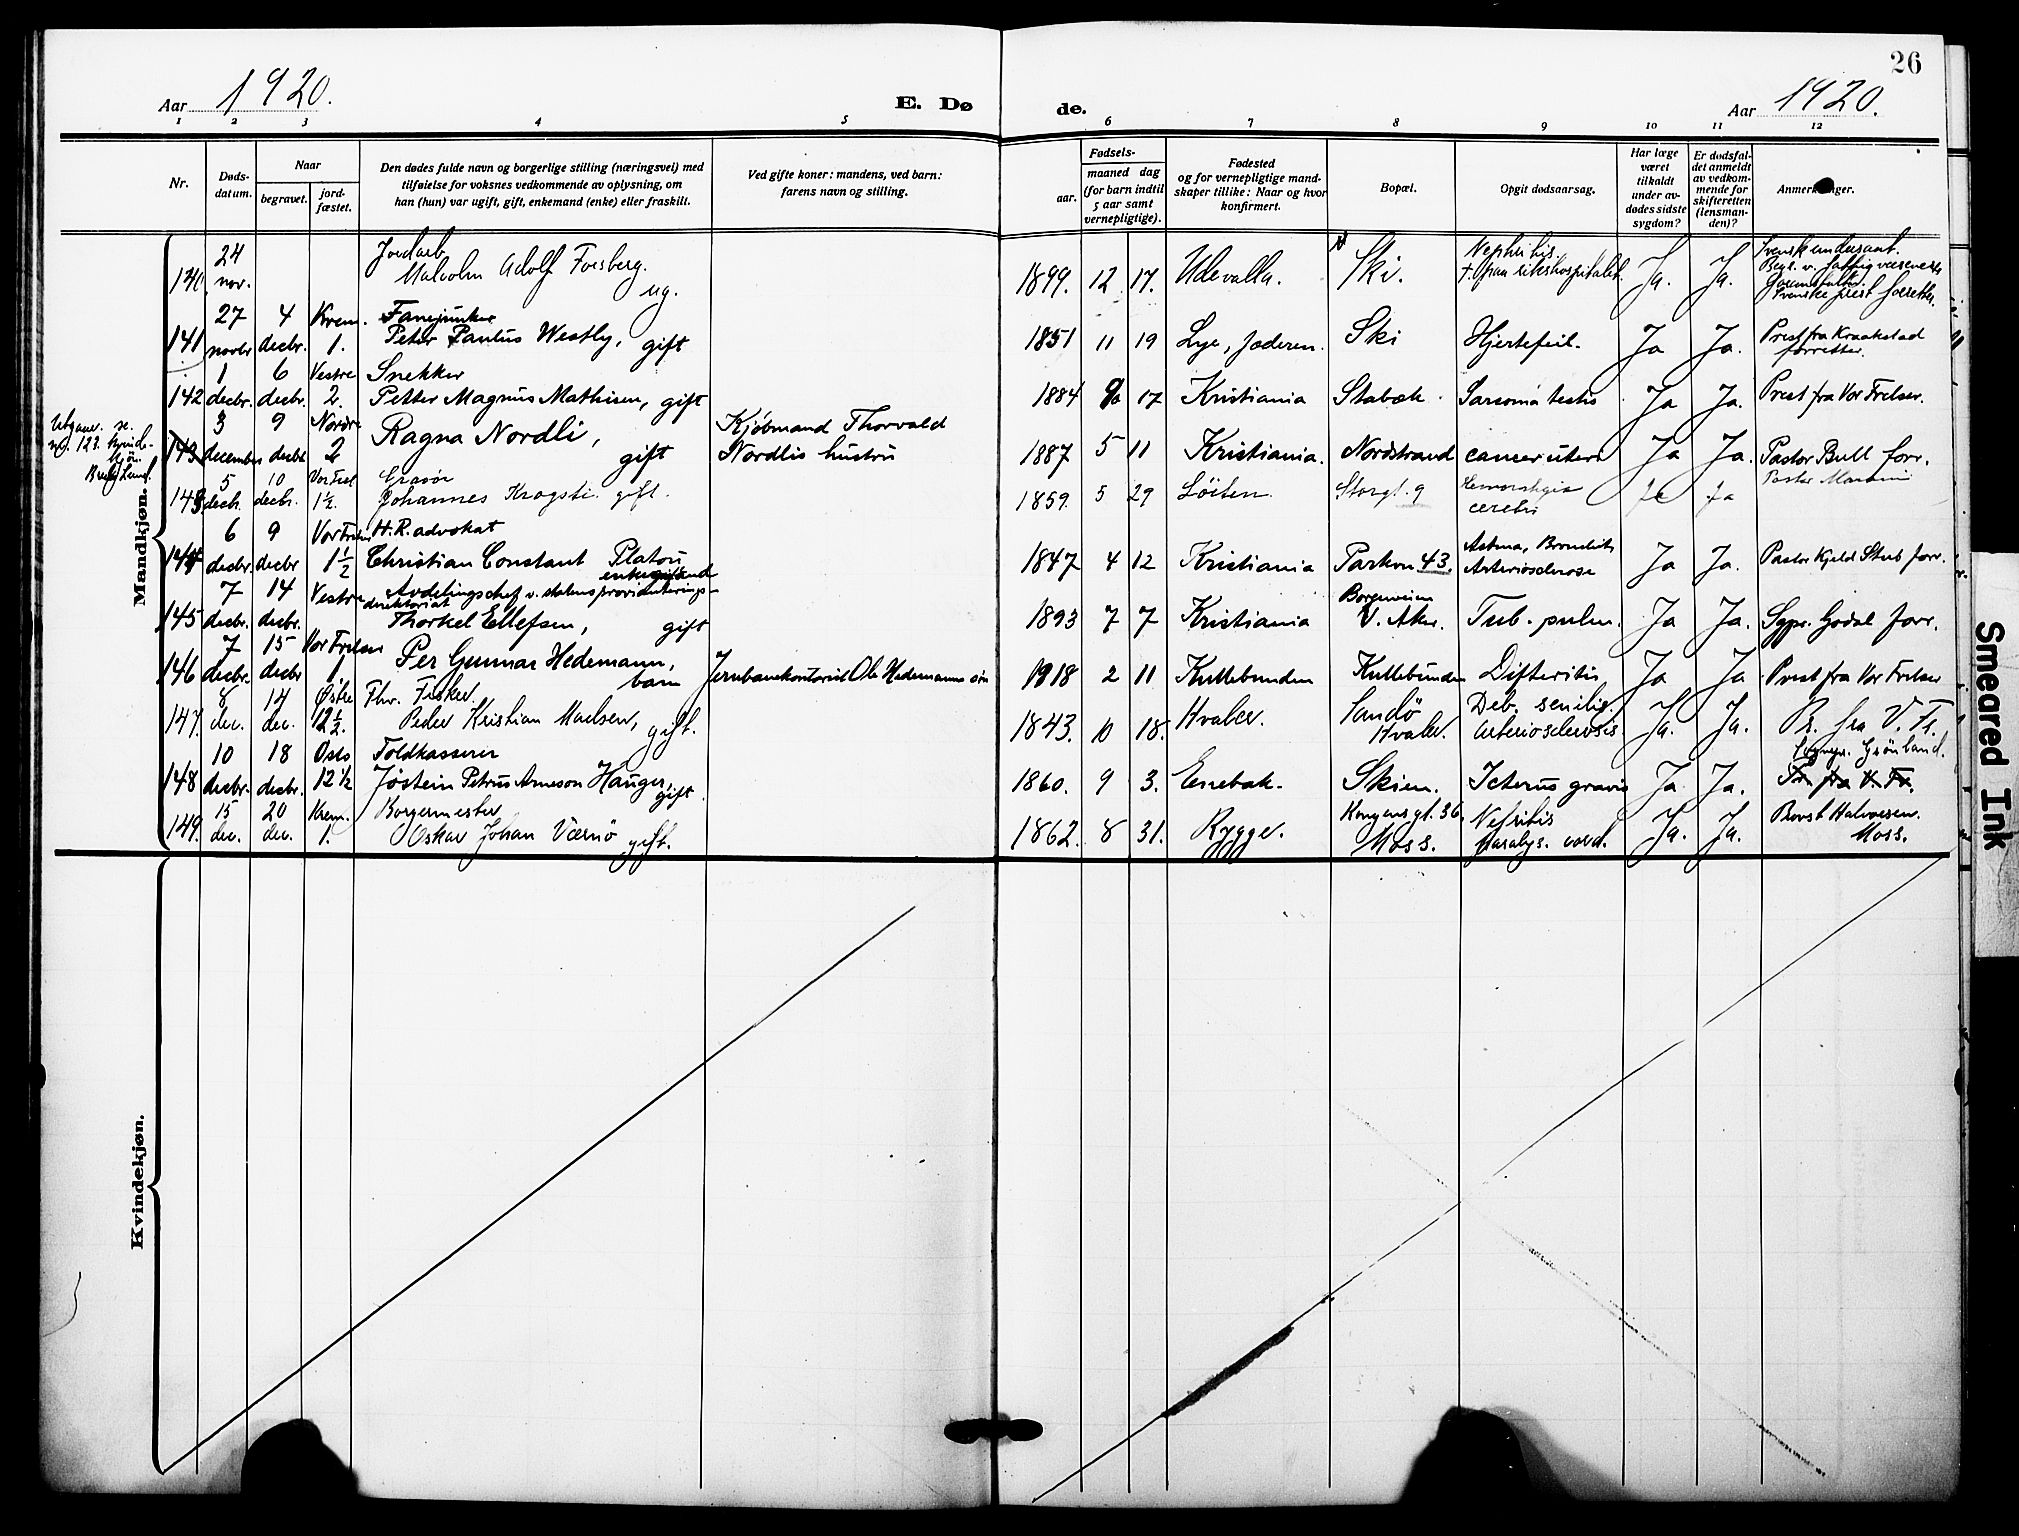 26
Aar 1920.
E. Dø
de.
Aar 1920.
1 2 3 4 5 6 7 8 9 10 11 12
Nr.
Døds-
datum.
Naar
begravet.
jord-
fæstet.
Den dødes fulde navn og borgerlige stilling (næringsvei) med
tilføielse for voksnes vedkommende av oplysning, om
han (hun) var ugift, gift, enkemand (enke) eller fraskilt.
Ved gifte koner: mandens, ved barn:
farens navn og stilling.
Fødsels-
aar.
maaned dag
(for barn indtil
5 aar samt
vernepligtige).
Fødested
og for vernepligtige mand-
skaper tillike: Naar og hvor
konfirmert.
Bopæl.
Opgit dødsaarsag.
Har læge
været
tilkaldt
under av-
dødes sidste
sygdom?
Er dødsfal-
det anmeldt
av vedkom-
mende for
skifteretten
(lensman-
den)?
Anmerkninger.
Mandkjøn.
140 24 nov. Jordarb. Malcolm Adolf Forsberg. ug. 1899. 12 17. Udevalla. Ski. Nephritis. + paa rikshospitalet. Ja. Ja. Svensk undersaat.
141 27 novbr 4 decbr. Krem. 1. Fanejunker Peter Paulus Westly, gift 1851 11 19 Lye, Jæderen. Ski Hjertefeil. Ja Ja. Prest fra Kraakstad forretter.
142 1 decbr. 6 decbr. Vestre 2. Snekker Petter Magnus Mathisen, gift 1884 17 Kristiania Stabæk. Sarcoma testis Ja Ja. Prest fra Vor Frelser.
Utgaar. se. no. 123. kvind-kjøn.
143 3 december 9 decbr Nordre 2 Ragna Nordli, gift Kjøbmand Thorvald Nordlis hustru 1887 5 11 Kristiania. Nordstrand cancer uteri Ja Ja. Pastor Bull forr.
143 5 decbr. 10 decbr. Vor Frel 1½. Gravør Johannes Krogsti. gift. 1859. 5 29 Løiten. Storgt. 9 Hemorrhagia cerebri Ja Ja Pastor
144 6 decbr. 9 decbr Vor Frelser 1½ H.R. advokat Christian Constant Platou enkemand 1847 4 12 Kristiania Parkvn 43. Astma, Bronchitis Arteriosclerose Ja Ja. Pastor Kjeld Stub forr.
145 7 decbr. 14 decbr. Vestre Avdelingschef v. statens provianterings-direktoriat Thorkel Ellefsen, gift 1893 7 7 Kristiania Borgenveien V. Aker. Tub. pulm. Ja Ja. Sgpr. Godal forr.
146 7 decbr. 15 decbr Vor Frelser 1 Per Gunnar Hedemann, barn Jernbanekontorist Ole Hedemanns søn 1918 2 11 Kullebunden Kullebunden Difteritis, Ja Ja Prest fra Vor Frelser
147. 8 dec. 14 dec. Østre 12½. Fhv. Fisker. Peder Kristian Madsen, gift. 1843. 10 18. Hvaler. Sandø Hvaler. Deb. senilis. Arteriosclerosis. Ja. Ja. Pr. fra V. Fr.
148 10 decbr. 18 decbr. Oslo 12 1/2 Toldkasserer Jøstein Petrus Arneson Hauger, gift. 1860. 9 3. Enebak. Skien. Icterus gravis Ja. Ja. Sognpr. Grønland. Pr. fra V. Fr.
149. 15 dec. 20 dec. Krem. 1. Borgermester Oskar Johan Værnø gift. 1862. 8 31. Rygge. Kongensgt. 36, Moss. Nefritis paralys. cord. Ja. Ja. Provst Halvorsen. Moss.
Kvindekjøn.
Smeared Ink